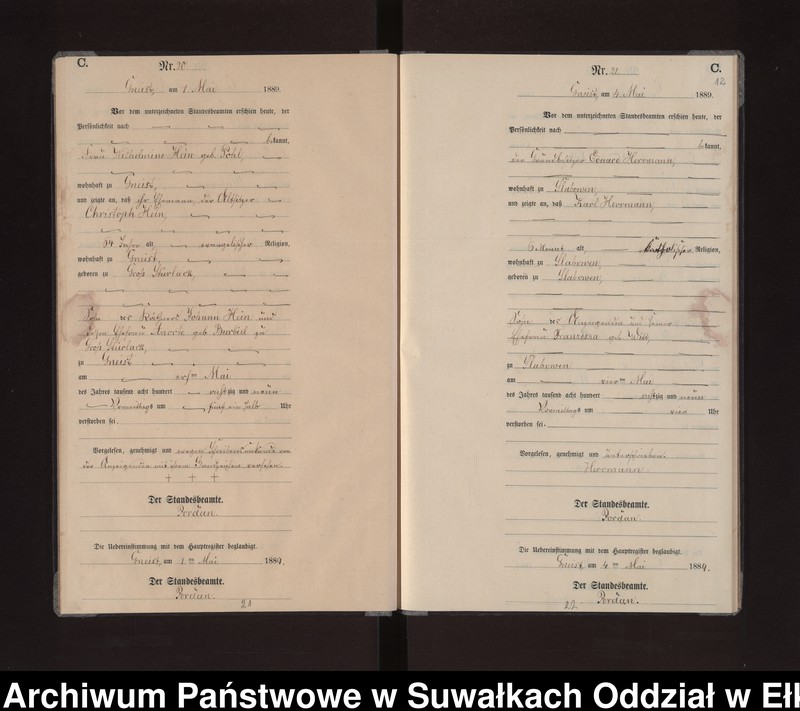 C.
Nr. 20
Gneist, am 1. Mai 1889.
Vor dem unterzeichneten Standesbeamten erschien heute, der
Persönlichkeit nach
bekannt,
Frau Wilhelmine Hein geb. Pohl,
wohnhaft zu Gneist,
und zeigte an, daß ihr Ehemann, der Altsitzer
Christoph Hein,
64 Jahre alt, evangelischer Religion,
wohnhaft zu Gneist,
geboren zu Groß Stürlack,
Sohn des Käthners Johann Hein und
dessen Ehefrau geb. zu
Groß Stürlack,
zu Gneist
am ersten Mai
des Jahres tausend acht hundert achtzig und neun
Vormittags um fünf ein halb Uhr
verstorben sei.
Vorgelesen, genehmigt und wegen Schreibensunkunde von
der Anzeigenden mit ihrem Handzeichen versehen.
+ + +
Der Standesbeamte.
Pordan.
Die Uebereinstimmung mit dem Hauptregister beglaubigt.
Gneist, am 1ten Mai 1889.
Der Standesbeamte.
Pordan.
21
C.
12
Nr. 21
Gneist, am 4. Mai 1889.
Vor dem unterzeichneten Standesbeamten erschien heute, der
Persönlichkeit nach
bekannt,
der Grundbesitzer Eduard Herrmann,
wohnhaft zu Slabowen,
und zeigte an, daß Karl Herrmann,
6 Monat alt, katholischer Religion,
wohnhaft zu Slabowen,
geboren zu Slabowen,
Sohn des Anzeigenden und seiner
Ehefrau Franziska geb.
zu Slabowen
am vierten Mai
des Jahres tausend acht hundert achtzig und neun
Vormittags um vier Uhr
verstorben sei.
Vorgelesen, genehmigt und unterschrieben.
Herrmann.
Der Standesbeamte.
Pordan.
Die Uebereinstimmung mit dem Hauptregister beglaubigt.
Gneist, am 4ten Mai 1889.
Der Standesbeamte.
Pordan.
22
Archiwum Państwowe w Suwałkach Oddział w Ełk